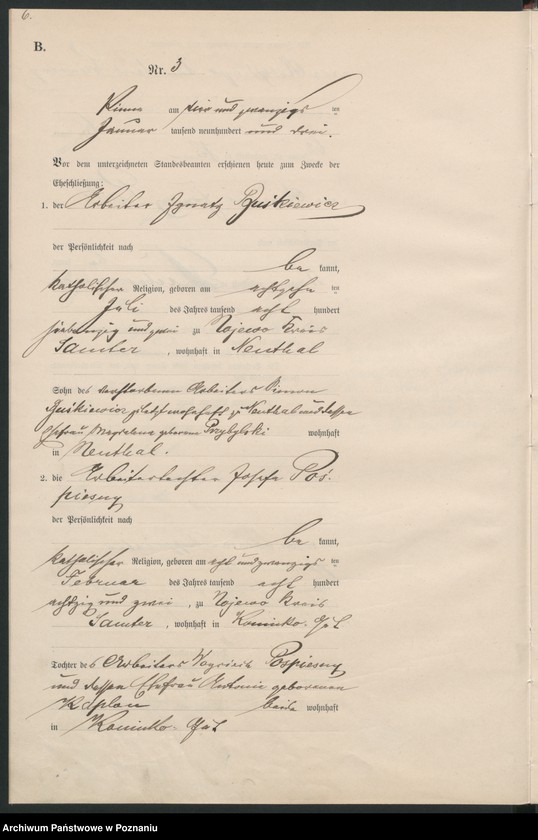 6.
B.
Nr. 3
Pinne am vier und zwanzigs ten
Januar tausend neunhundert und drei.
Vor dem unterzeichneten Standesbeamten erschienen heute zum Zwecke der
Eheschließung:
1. der Arbeiter Ignatz Ruśkiewicz
der Persönlichkeit nach
be kannt,
katholischer Religion, geboren am achtzehn ten
Juli des Jahres tausend acht hundert
siebenzig und zwei zu Nojewo Kreis
Samter, wohnhaft in Neuthal
Sohn des verstorbenen Arbeiters
Ruśkiewicz zuletzt wohnhaft zu Neuthal und dessen
Ehefrau Magdalena geborene Przybylski wohnhaft
in Neuthal.
2. die Arbeitertochter Josefa Pos-
pieszny
der Persönlichkeit nach
be kannt,
katholischer Religion, geboren am acht und zwanzigs ten
Februar des Jahres tausend acht hundert
achtzig und zwei, zu Nojewo Kreis
Samter, wohnhaft in Kominko-Gut
Tochter des Arbeiters Pospieszny
und dessen Ehefrau Antonie geborenen
Kaplan beide wohnhaft
in Kominko-Gut
Archiwum Państwowe w Poznaniu